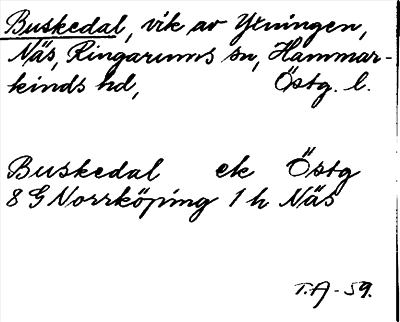 Buskedal, vik av Yxningen,
Näs, Ringarums sn, Hammar-
kinds hd, Östg. l.
Buskedal ek Östg
8 G Norrköping 1 h Näs
T.A-59.